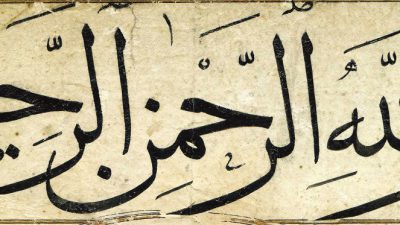 الله الرحمن الرحيم